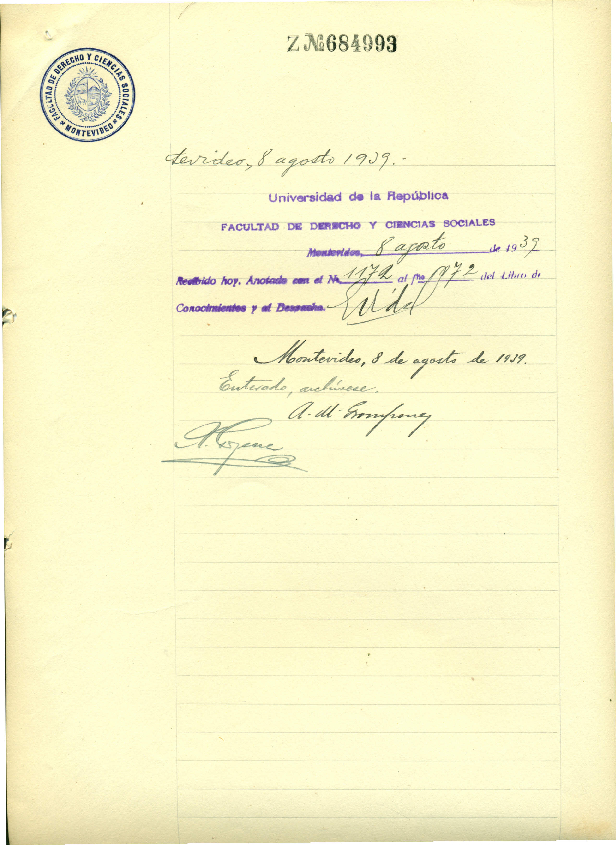 Z №684993
FACULTAD DE DERECHO Y CIENCIAS SOCIALES
MONTEVIDEO
tevideo, 8 agosto 1939.-
Universidad de la República
FACULTAD DE DERECHO Y CIENCIAS SOCIALES
Montevideo, 8 agosto de 1939
Recibido hoy. Anotado con el No. 1172 al fno 1172 del Libro de
Conocimientos y al Despacho.
Montevideo, 8 de agosto de 1939.
Enterado, archívese.
A. M. Grompone